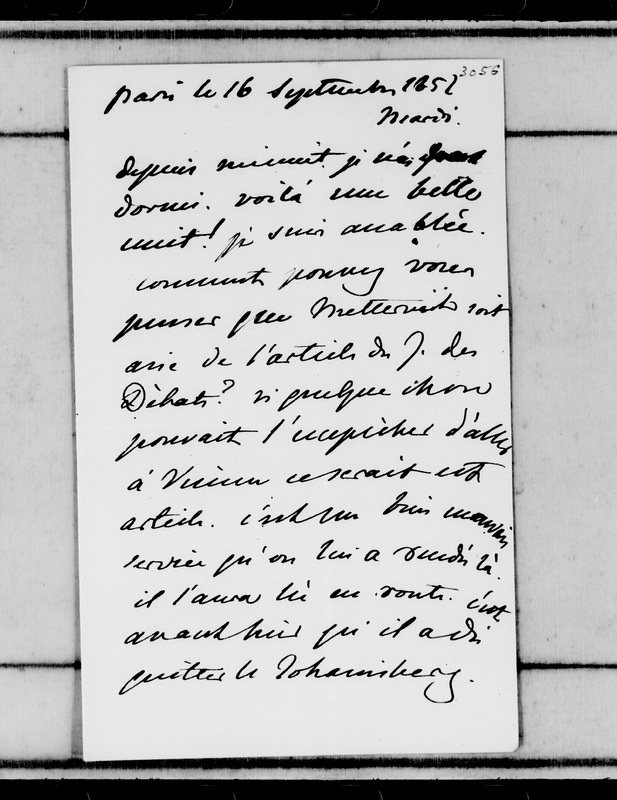 3056
Paris le 16 Septembre 1851
Mardi.
depuis minuit je n'ai
dormi. voilà une belle
nuit! je suis accablée.
comment pouvez vous
penser que Metternich soit
aise de l'article du J. des
Débats? si quelque chose
pouvait l'empêcher d'aller
à Vienne ce serait cet
article. c'est un bien mauvais
service qu'on lui a rendu là.
il l'aura lu en route. c'est
avant hier qu'il a dû
quitter le Johannisberg.